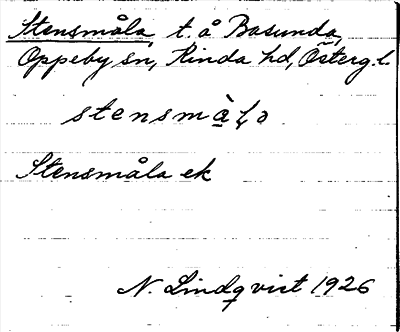 Stensmåla, t. å Basunda,
Oppeby sn, Kinda hd, Österg. l.
stensmå̀ḷa
Stensmåla ek
N. Lindqvist 1926